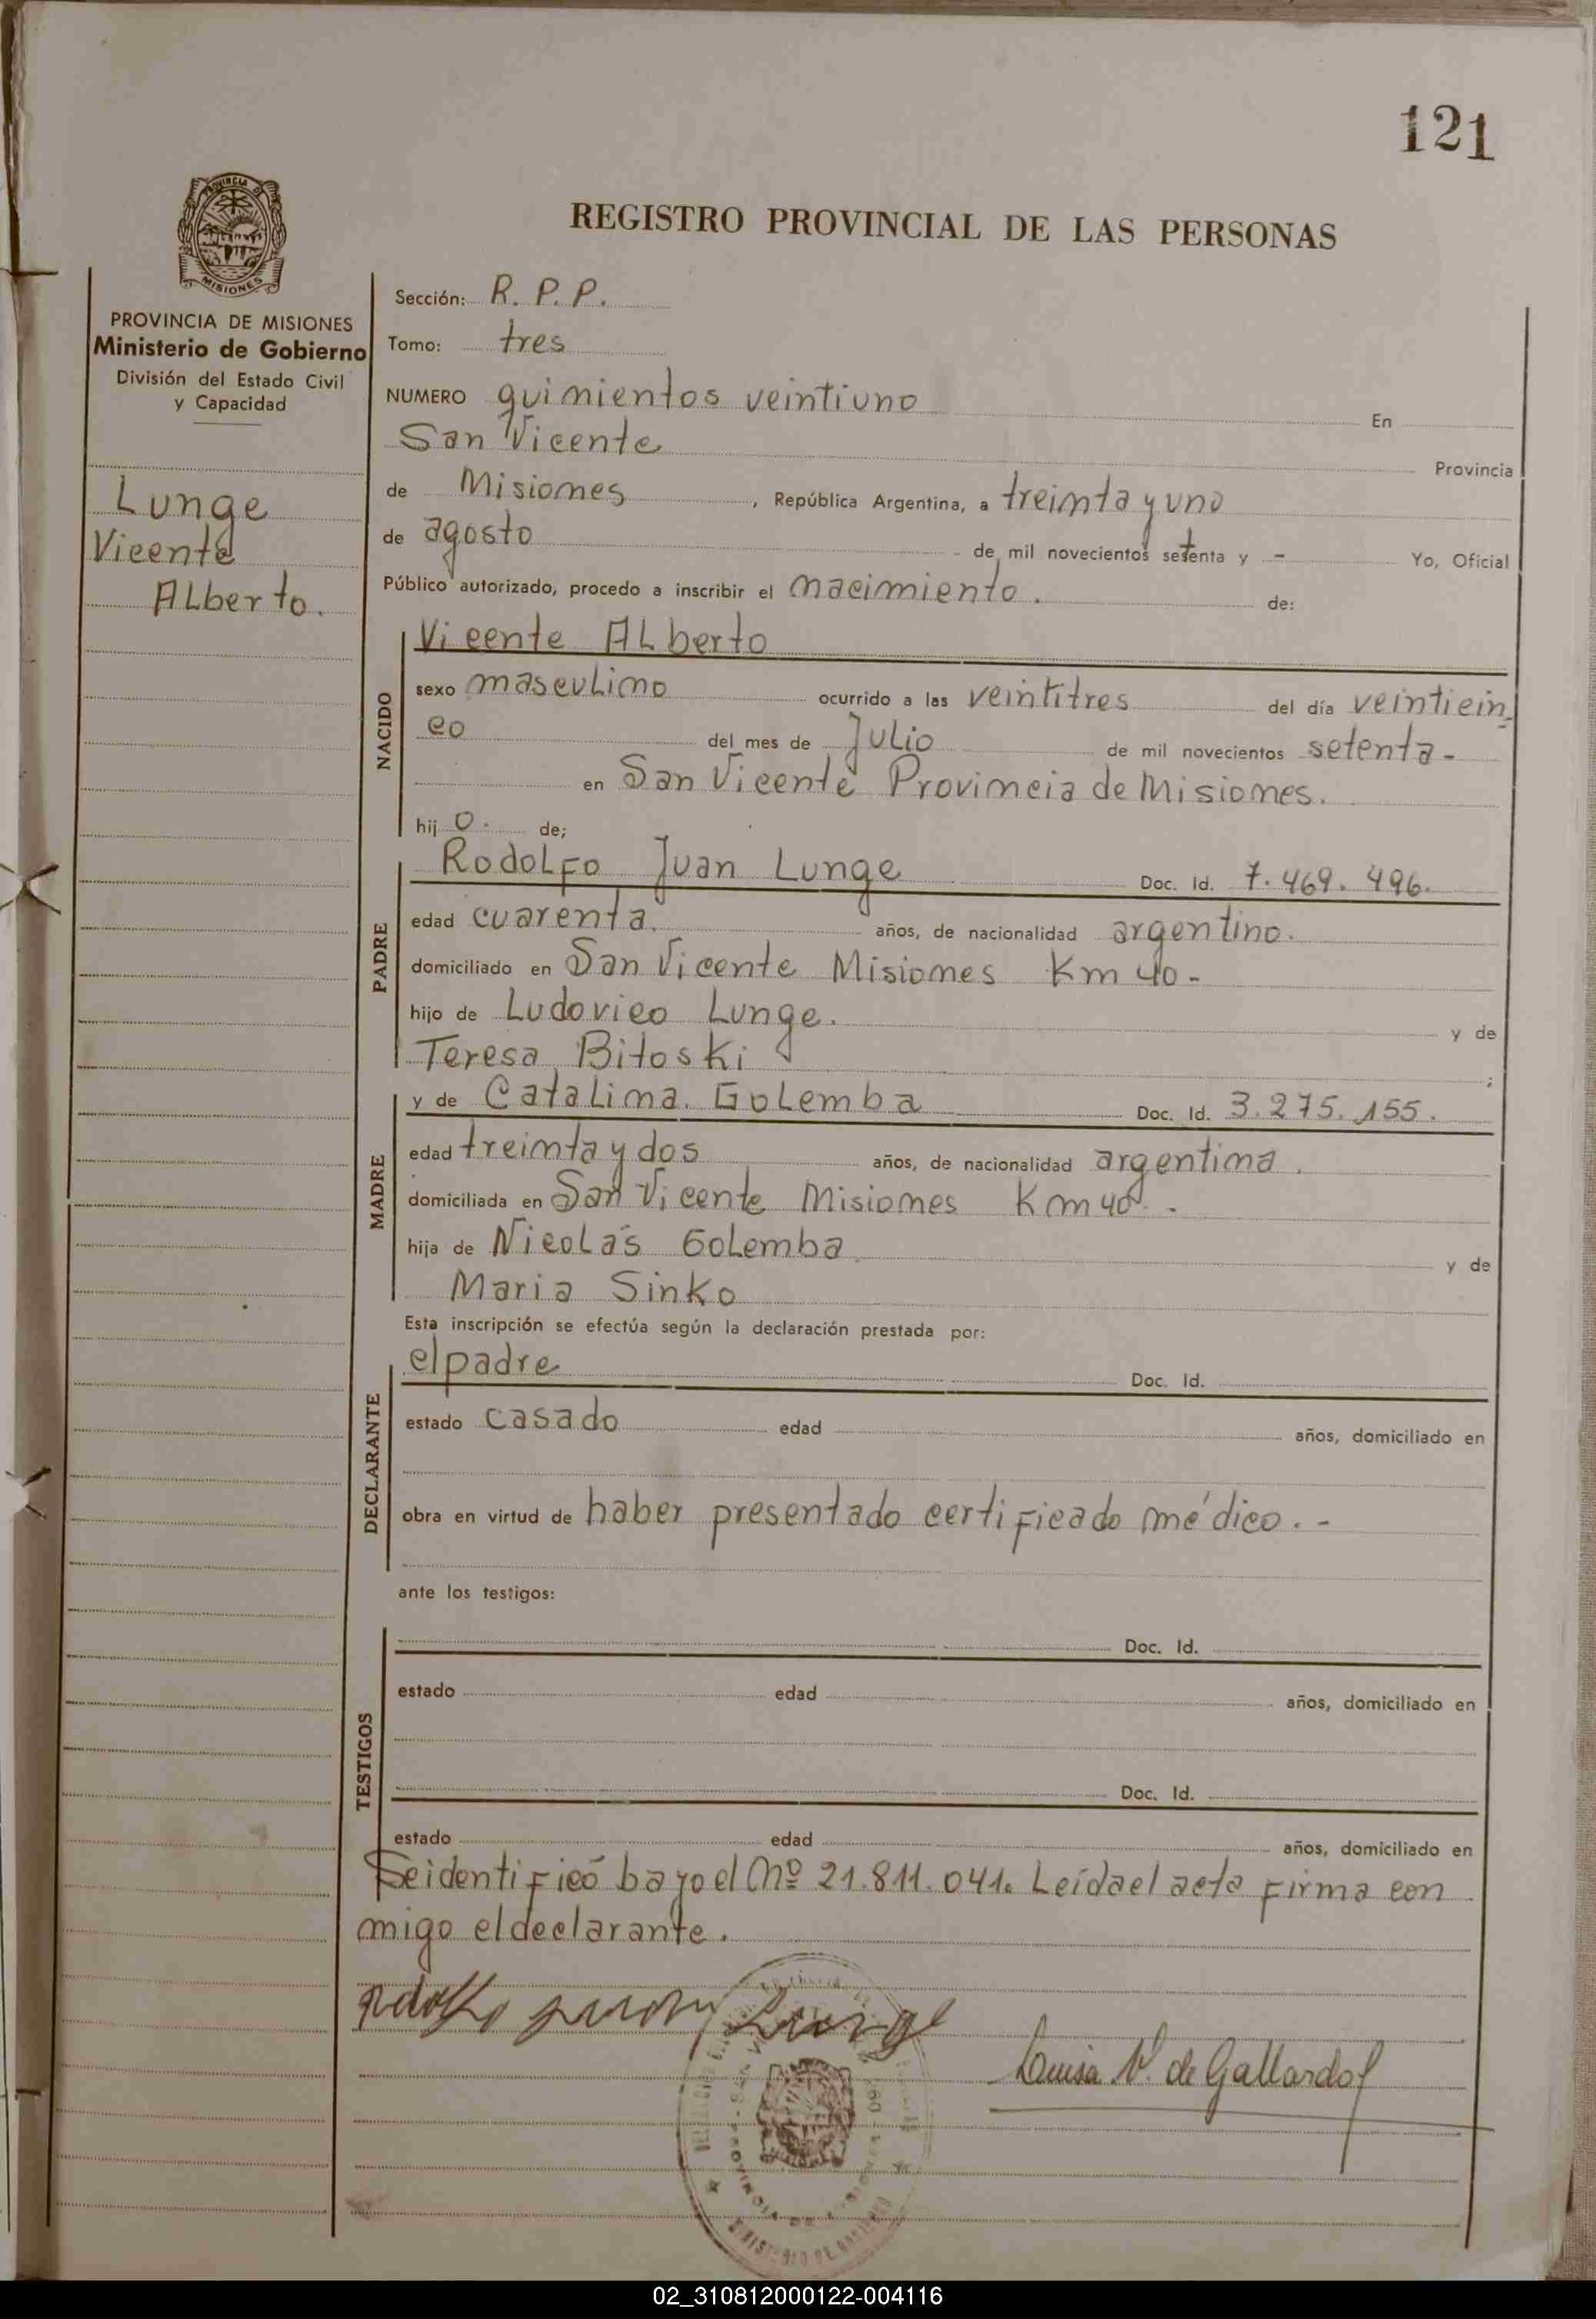 121
PROVINCIA DE
MISIONES
REGISTRO PROVINCIAL DE LAS PERSONAS
PROVINCIA DE MISIONES
Ministerio de Gobierno
División del Estado Civil
y Capacidad
Lunge
Vicente
Alberto.
Sección: R. P. P.
Tomo: tres
NUMERO quinientos veintiuno En
San Vicente Provincia
de Misiones, República Argentina, a treinta y uno
de agosto de mil novecientos setenta y - Yo, Oficial
Público autorizado, procedo a inscribir el nacimiento. de:
NACIDO
Vicente Alberto
sexo masculino ocurrido a las veintitres del día veinticin-
co del mes de Julio de mil novecientos setenta-
en San Vicente Provincia de Misiones.
hijo. de;
PADRE
Rodolfo Juan Lunge Doc. Id. 7.469.496.
edad cuarenta. años, de nacionalidad argentino.
domiciliado en San Vicente Misiones Km 40-
hijo de Ludovico Lunge. y de
Teresa Bitoski ;
MADRE
y de Catalina. Golemba Doc. Id. 3.275.155.
edad treinta y dos años, de nacionalidad argentina.
domiciliada en San Vicente Misiones Km 40.-
hija de Nicolás Golemba y de
Maria Sinko
Esta inscripción se efectúa según la declaración prestada por:
DECLARANTE
el padre Doc. Id.
estado casado edad años, domiciliado en
obra en virtud de haber presentado certificado médico.-
ante los testigos:
TESTIGOS
Doc. Id.
estado edad años, domiciliado en
Doc. Id.
estado edad años, domiciliado en
Se identificó bajo el Nº 21.811.041. Leída el acta firma con
migo el declarante.
Luisa V. de Gallardo
02_310812000122-004116